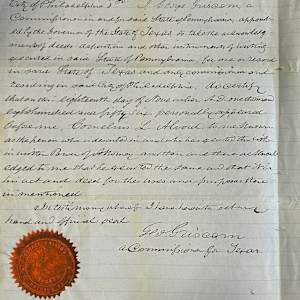 City of Philadelphia I George Griscom, a
Commissioner in and for said State of Pennsylvania, appoint-
ed by the Governor of the State of Texas to take the acknowledg
ments of deeds depositions and other instruments of writing
executed in said State of Pennsylvania for use or record
in said State of Texas and duly commissioned and
residing in said City of Philadelphia, do certify
that on this eighteenth day of November A.D. one thousand
eight hundred and fifty six personally appeared
before me, Cornelius L. to me known
as the person who and who
written Power of Attorney and then acknowl
edged to me that he executed the same and that it is
his act and deed for the uses and purposes there
in mentioned
In testimony whereof I have hereunto set my
hand and official seal
Geo Griscom
a Commissioner for Texas.